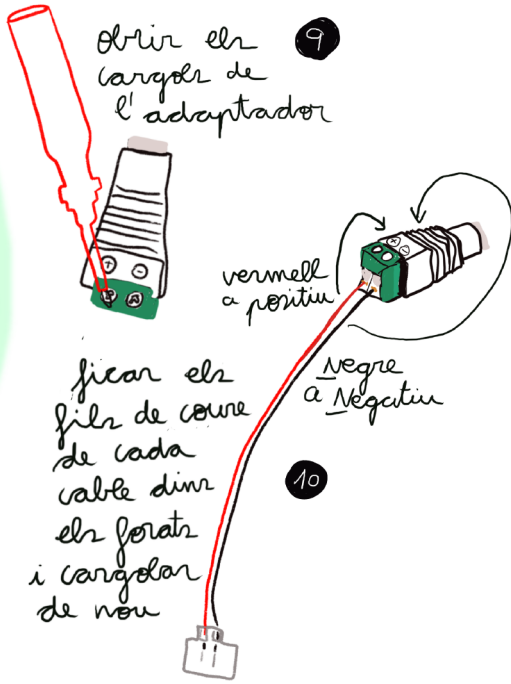 obrir els
cargols de
l'adaptador
9
+ -
vermell
a positiu
+ -
Negre
a Negatiu
ficar els
fils de coure
de cada
cable dins
els forats
i cargolar
de nou
10